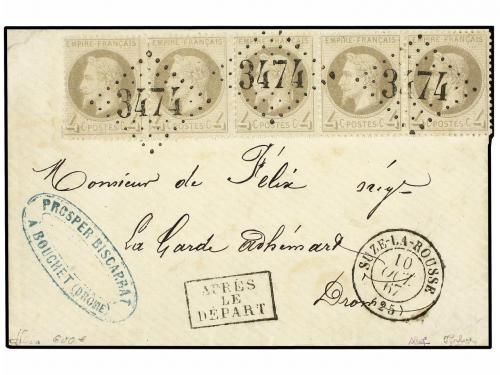 EMPIRE·FRANÇAIS EMPIRE·FRANÇAIS EMPIRE·FRANÇAIS EMPIRE·FRANÇAIS EMPIRE·FRANÇAIS
3474 3474 3474
4 C·POSTES·C 4 4 C·POSTES·C 4 4 C·POSTES·C 4 4 C·POSTES·C 4 4 C·POSTES·C 4
Monsieur de Félix
La Garde Adhémard
Drom
PROSPER BISCARRAT
A BOUCHET (DROME)
APRÈS
LE
DÉPART
SUZE-LA-ROUSSE
10
OCT.
67
(25)
600 €